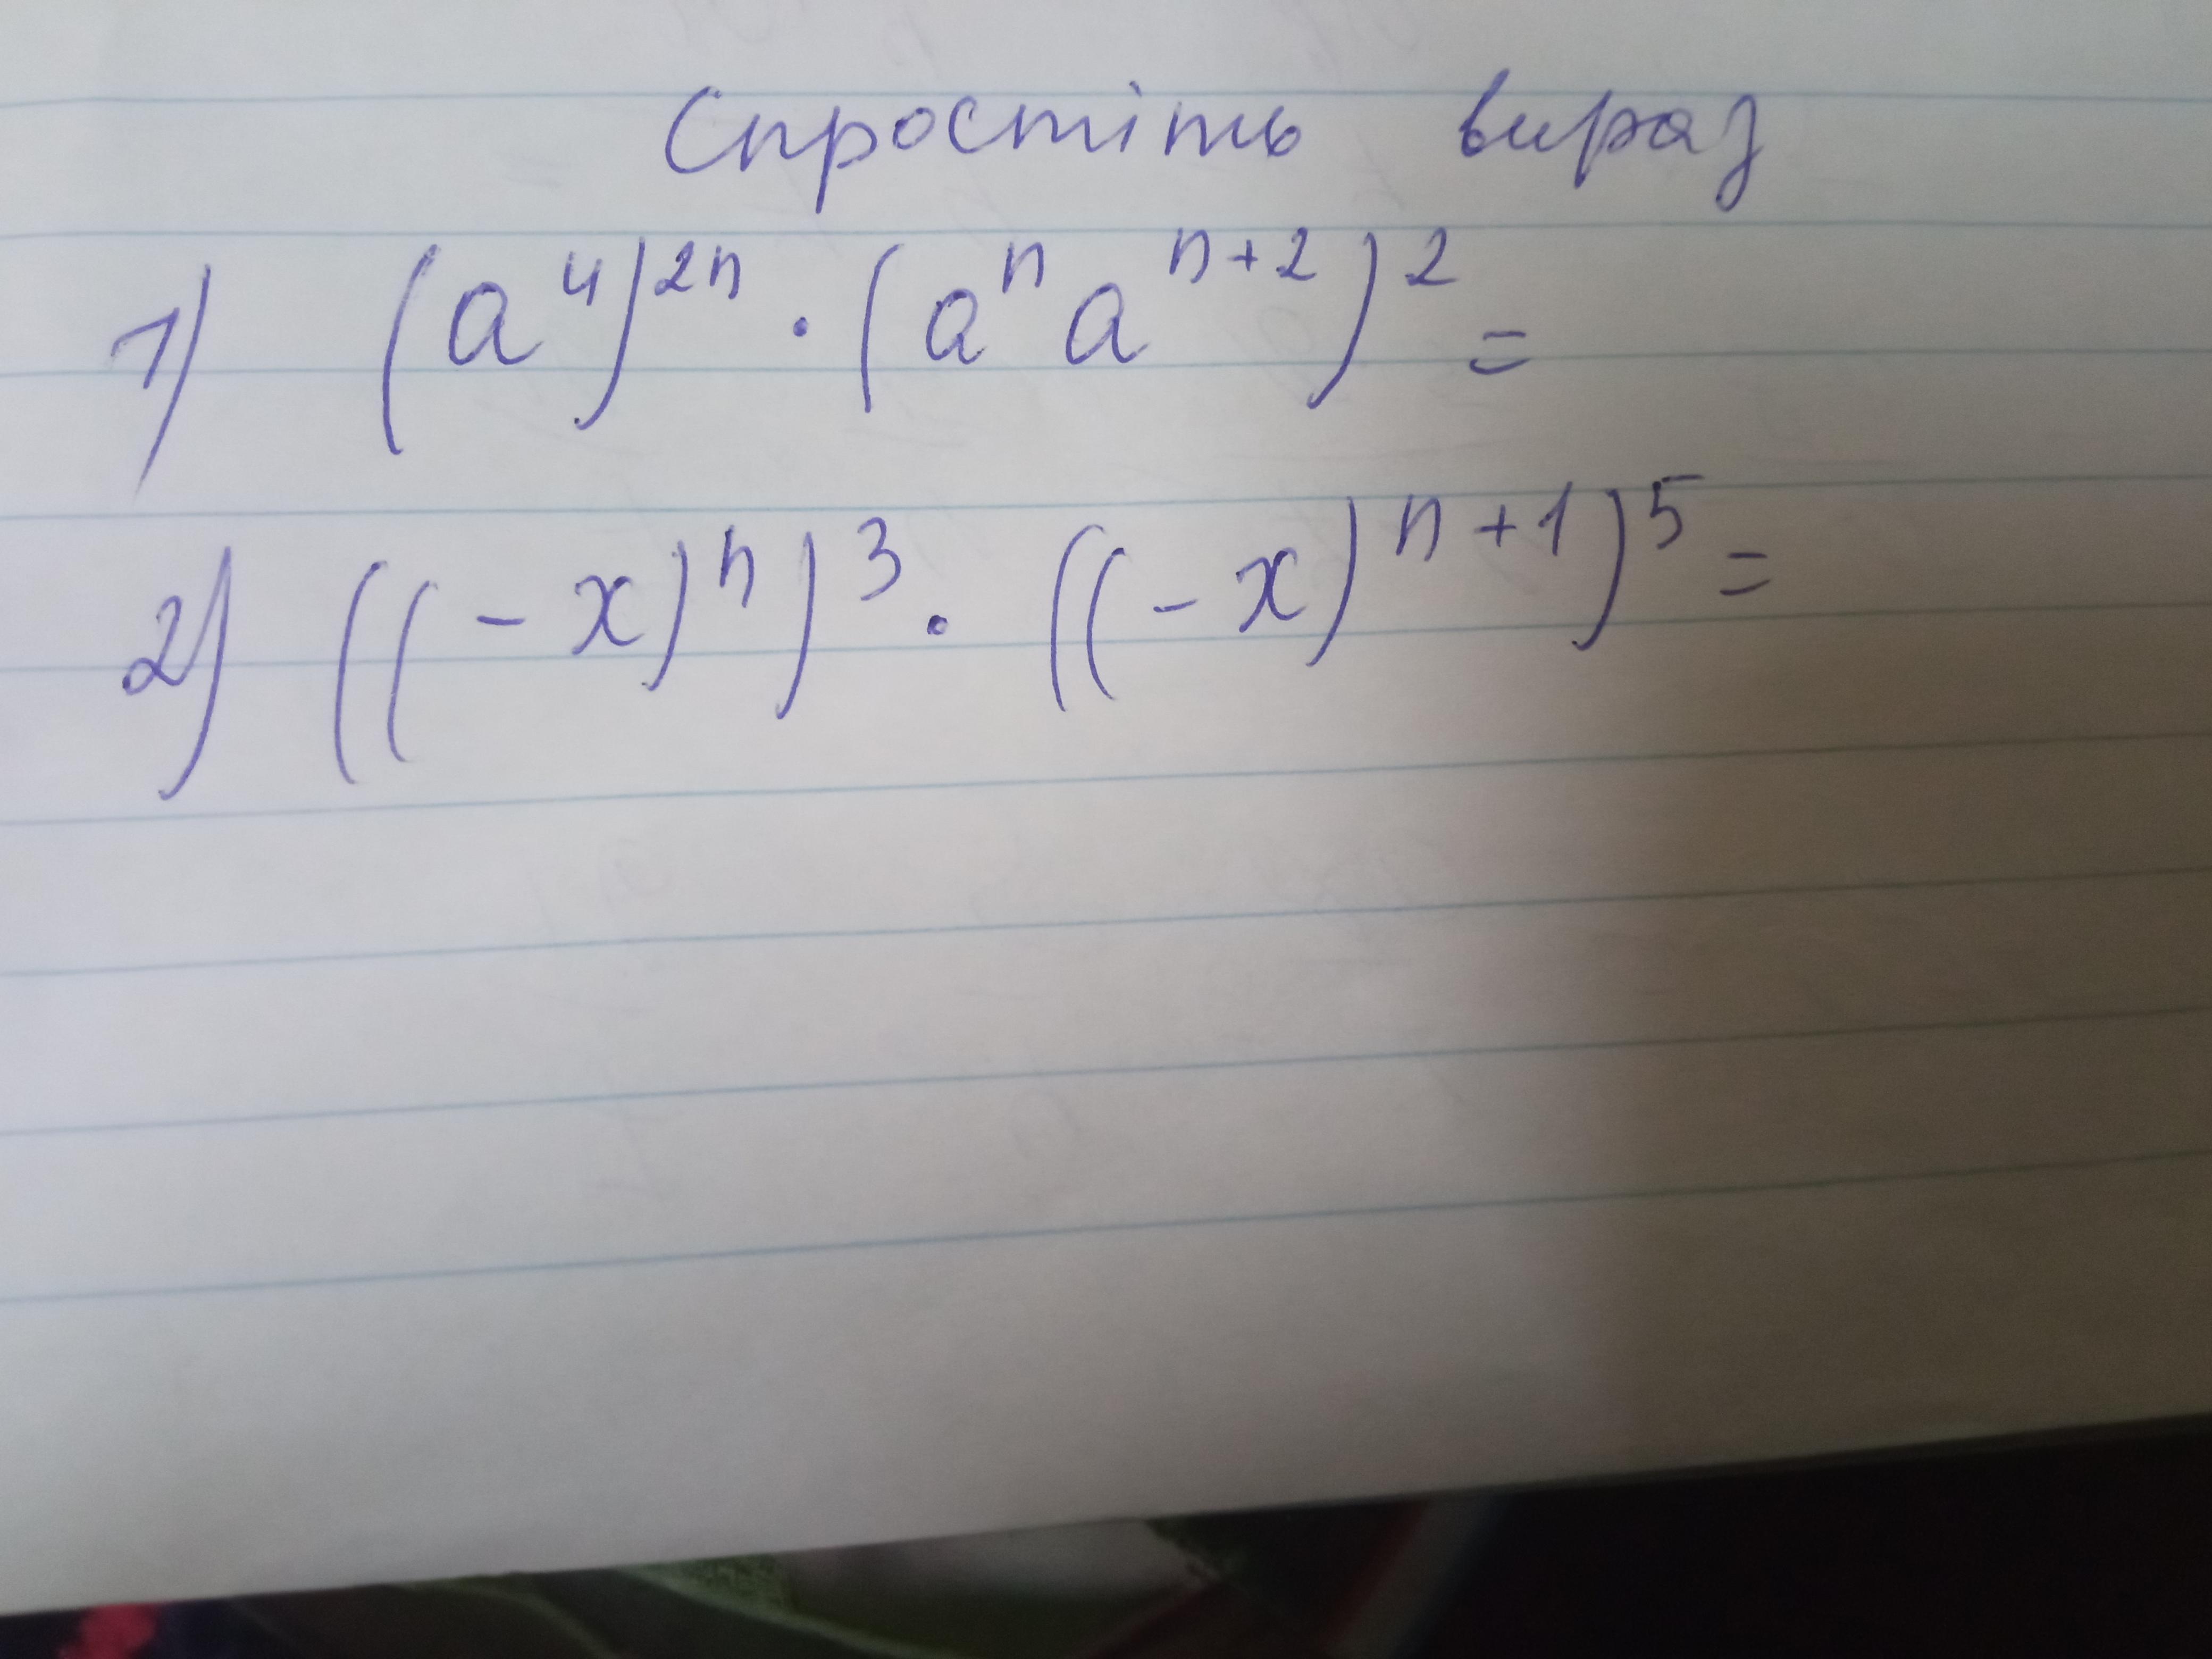 Спростіть вираз
1) (a⁴)²ⁿ · (aⁿ aⁿ⁺²)² =
2) ((-x)ⁿ)³ · ((-x)ⁿ⁺¹)⁵ =